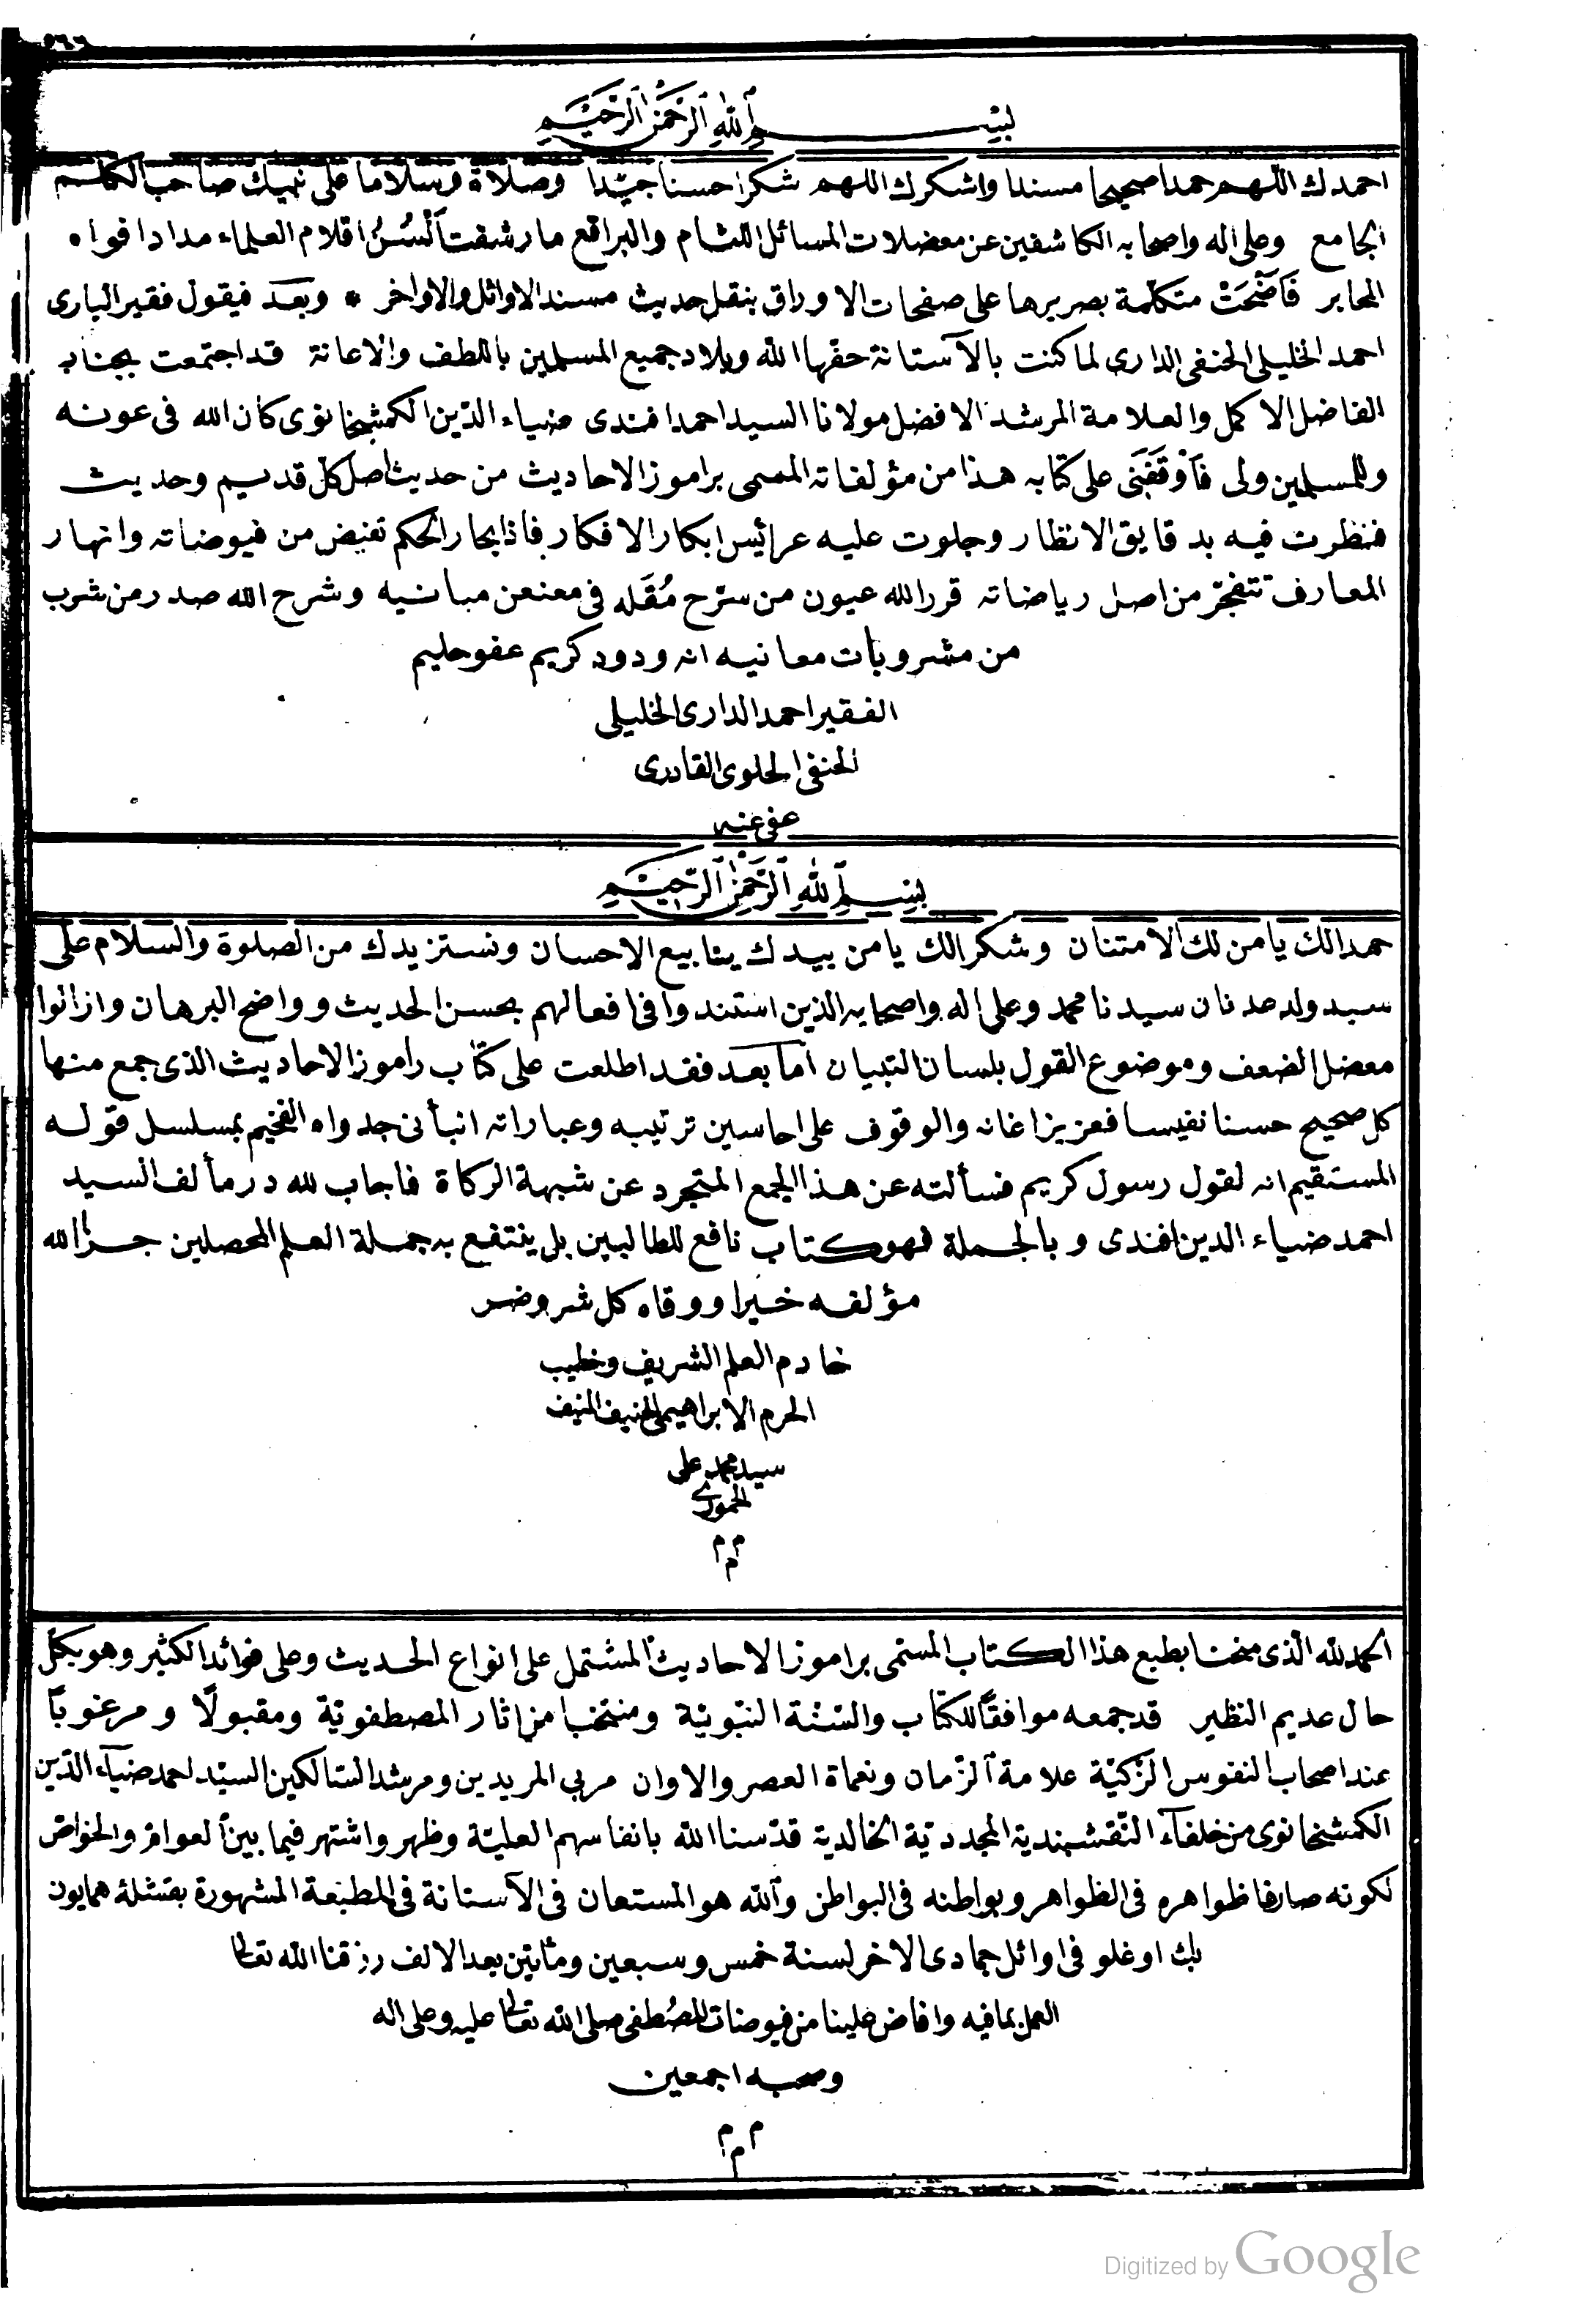 ٥٦٦
بسم الله الرحمن الرحيم
احمدك اللهم حمدا صحيحا مسندا واشكرك اللهم شكرا حسنا جيدا وصلاة وسلاما على نبيك صاحب الكلم
الجامع وعلى اله واصحابه الكاشفين عن معضلات المسائل اللثام والبراقع ما رشفت اَلْسُنُ اقلام العلماء مداد افواه
المحابر فَاَضْحَتْ متكلمة بصريرها على صفحات الاوراق بنقل حديث مسند الاوائل والاواخر * وبعد فيقول فقير البارى
احمد الخليلى الحنفى الدارى لما كنت بالآستانة حفها الله وبلاد جميع المسلمين باللطف والاعانة قد اجتمعت بجناب
الفاضل الاكمل والعلامة المرشد الافضل مولانا السيد احمد افندى ضياء الدين الكمشخانوى كان الله فى عونه
وللمسلمين ولى فَاَوْقَفَنى على كتابه هذا من مؤلفاته المسمى براموز الاحاديث من حديث اصل كل قديم وحديث
فنظرت فيه بدقايق الانظار وجلوت عليه عرائس ابكار الافكار فاذا بحار الحكم تفيض من فيوضاته وانهار
المعارف تتفجّر من اصل رياضاته قرر الله عيون من سرّح مُقَله فى معنعن مبانيه وشرح الله صدر من شرب
من مشروبات معانيه انه ودود كريم عفو حليم
الفقير احمد الدارى الخليلى
الحنفى الخلوى القادرى
عفى عنه
بسم الله الرحمن الرحيم
حمدا لك يا من لك الامتنان وشكرا لك يا من بيدك ينابيع الاحسان ونستزيدك من الصلوة والسلام على
سيد ولد عدنان سيدنا محمد وعلى اله واصحابه الذين استندوا فى افعالهم بحسن الحديث وواضح البرهان وازالوا
معضل الضعف وموضوع القول بلسان التبيان اما بعد فقد اطلعت على كتاب راموز الاحاديث الذى جمع منها
كل صحيح حسنا نفيسا فعزيز اغانه والوقوف على احاسين ترتيبه وعباراته انبأنى جدواه الفخيم بمسلسل قوله
المستقيم انه لقول رسول كريم فسألته عن هذا الجمع المتجرد عن شبهة الركاة فاجاب لله در مألف السيد
احمد ضياء الدين افندى وبالجملة فهو كتاب نافع للطالبين بل ينتفع به جملة العلم المحصلين جزا الله
مؤلفه خيرا ووقاه كل شر وضر
خادم العلم الشريف وخطيب
الحرم الابراهيمى الحنيف المنيف
سيد محمد على
م م م
الحمد لله الذى منحنا بطبع هذا الكتاب المسمّى براموز الاحاديث المشتمل على انواع الحديث وعلى فوائد الكثير وهو بكل
حال عديم النظير قد جمعه موافقاً للكتاب والسّنّة النبويّة ومنتخبا من اثار المصطفويّة ومقبولًا ومرغوباً
عند اصحاب النفوس الزّكيّة علامة الزّمان ونعماة العصر والاوان مربى المريدين ومرشد السّالكين السيّد احمد ضيآء الدّين
الكمشخانوى من خلفآء النّقشبندية المجددية الخالدية قدّسنا الله بانفاسهم العليّة وظهر واشتهر فيما بين العوام والخواص
لكونه صارفا ظواهره فى الظواهر وبواطنه فى البواطن والله هو المستعان فى الآستانة فى المطبعة المشهورة بقشلۀ همايون
بك اوغلو فى اوائل جمادى الاخر لسنة خمس وسبعين ومأتين بعد الالف رزقنا الله تعالى
العمل بما فيه وافاض علينا من فيوضات المصُطفى صلى الله تعالى عليه وعلى اله
وصحبه اجمعين
م م م
Digitized by Google